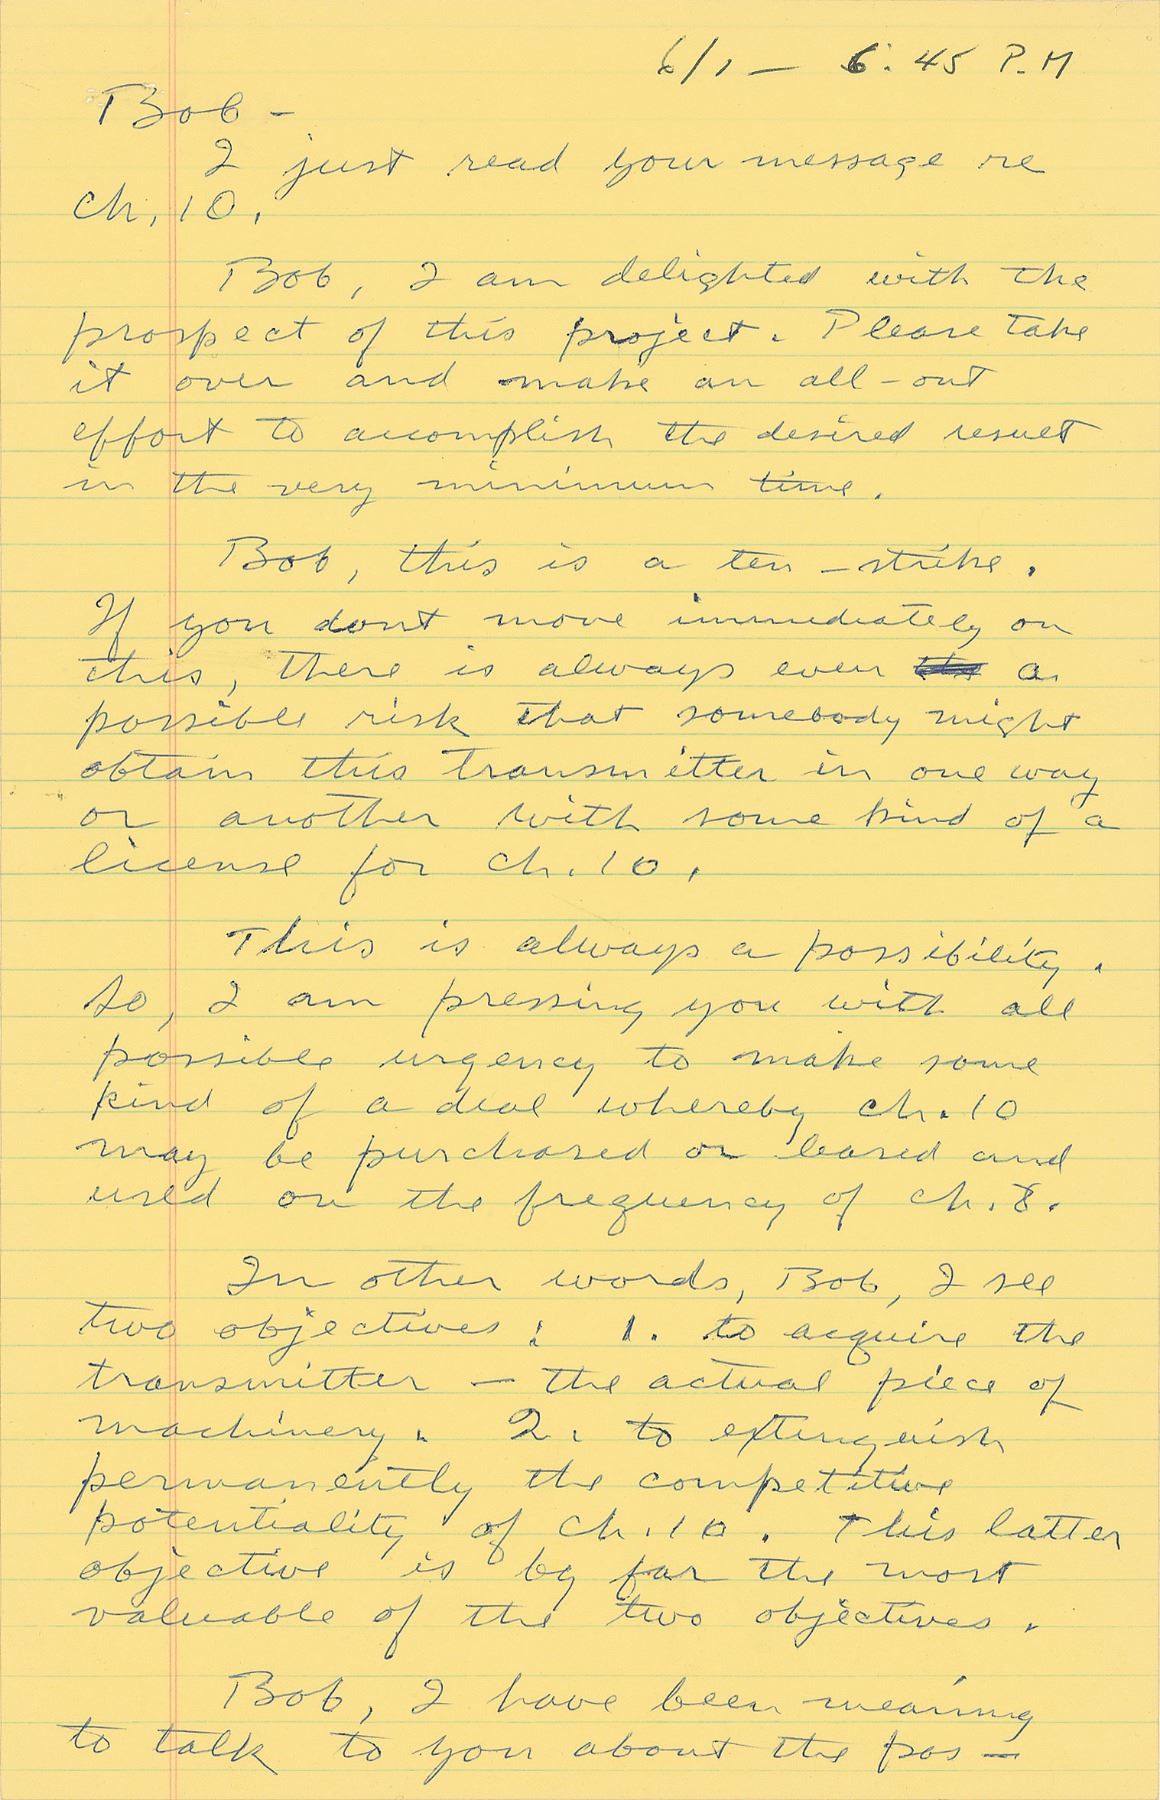 6/1 — 6:45 P.M
Bob -
I just read your message re
Ch. 10.
Bob, I am delighted with the
prospect of this project. Please take
it over and make an all-out
effort to accomplish the desired result
in the very minimum time.
Bob, this is a ten-strike.
If you dont move immediately on
this, there is always even a
possible risk that somebody might
obtain this transmitter in one way
or another with some kind of a
license for ch. 10.
This is always a possibility.
So, I am pressing you with all
possible urgency to make some
kind of a deal whereby ch. 10
may be purchased or leased and
used on the frequency of ch. 8.
In other words, Bob, I see
two objectives: 1. to acquire the
transmitter — the actual piece of
machinery. 2. to extinguish
permanently the competitive
potentiality of ch. 10. This latter
objective is by far the most
valuable of the two objectives.
Bob, I have been meaning
to talk to you about the pos-